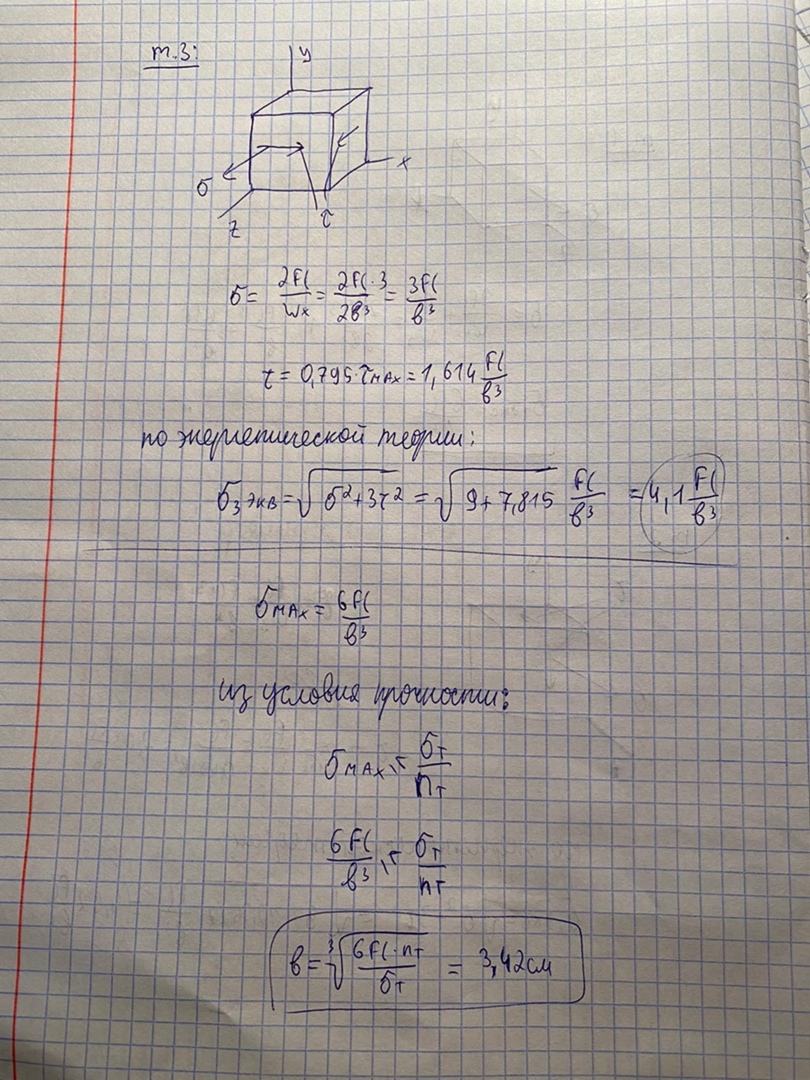 т.3:
y
x
σ
τ
z
σ = 2Fl/Wx = 2Fl·3/2b³ = 3Fl/b³
τ = 0,795·τмах = 1,614 Fl/b³
по энергетической теории:
σ₃ экв = √(σ²+3τ²) = √(9+7,815) Fl/b³ = 4,1 Fl/b³
σмах = 6Fl/b³
из условия прочности:
σмах ≤ σт/nт
6Fl/b³ ≤ σт/nт
b = ³√(6Fl·nт/σт) = 3,42см